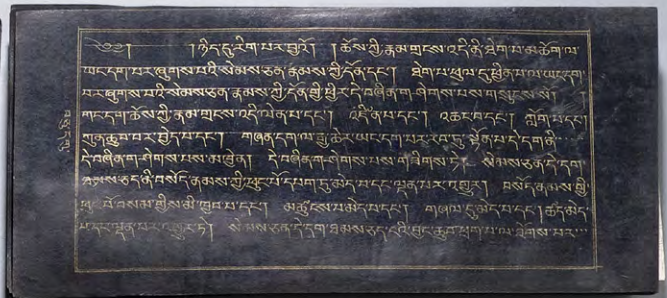 ༄༅། །ཉིད་དུ་རིག་པར་བྱའོ། །ཆོས་ཀྱི་རྣམ་གྲངས་འདི་ནི་ཐེག་པ་མཆོག་ལ་
ཡང་དག་པར་ཞུགས་པའི་སེམས་ཅན་རྣམས་ཀྱི་དོན་དང་། ཐེག་པ་ཕུལ་དུ་ཕྱིན་པ་ལ་ཡང་དག་
པར་ཞུགས་པའི་སེམས་ཅན་རྣམས་ཀྱི་དོན་གྱི་ཕྱིར་དེ་བཞིན་གཤེགས་པས་གསུངས་སོ། །
གང་དག་ཆོས་ཀྱི་རྣམ་གྲངས་འདི་ལེན་པ་དང་། འཛིན་པ་དང་། འཆང་བ་དང་། ཀློག་པ་དང་།
ཀུན་ཆུབ་པར་བྱེད་པ་དང་། གཞན་དག་ལ་རྒྱ་ཆེར་ཡང་དག་པར་རབ་ཏུ་སྟོན་པ་དེ་དག་ནི་
དེ་བཞིན་གཤེགས་པས་མཁྱེན། དེ་བཞིན་གཤེགས་པས་གཟིགས་ཏེ། སེམས་ཅན་དེ་དག་
ཐམས་ཅད་ནི་བསོད་ནམས་ཀྱི་ཕུང་པོ་དཔག་ཏུ་མེད་པ་དང་ལྡན་པར་འགྱུར། བསོད་ནམས་ཀྱི་
ཕུང་པོ་བསམ་གྱིས་མི་ཁྱབ་པ་དང་། མཚུངས་པ་མེད་པ་དང་། གཞལ་དུ་མེད་པ་དང་། ཚད་མེད་
པ་དང་ལྡན་པར་འགྱུར་ཏེ། སེམས་ཅན་དེ་དག་ཐམས་ཅད་ངའི་བྱང་ཆུབ་ཕྲག་པ་ལ་ཐོགས་པར་